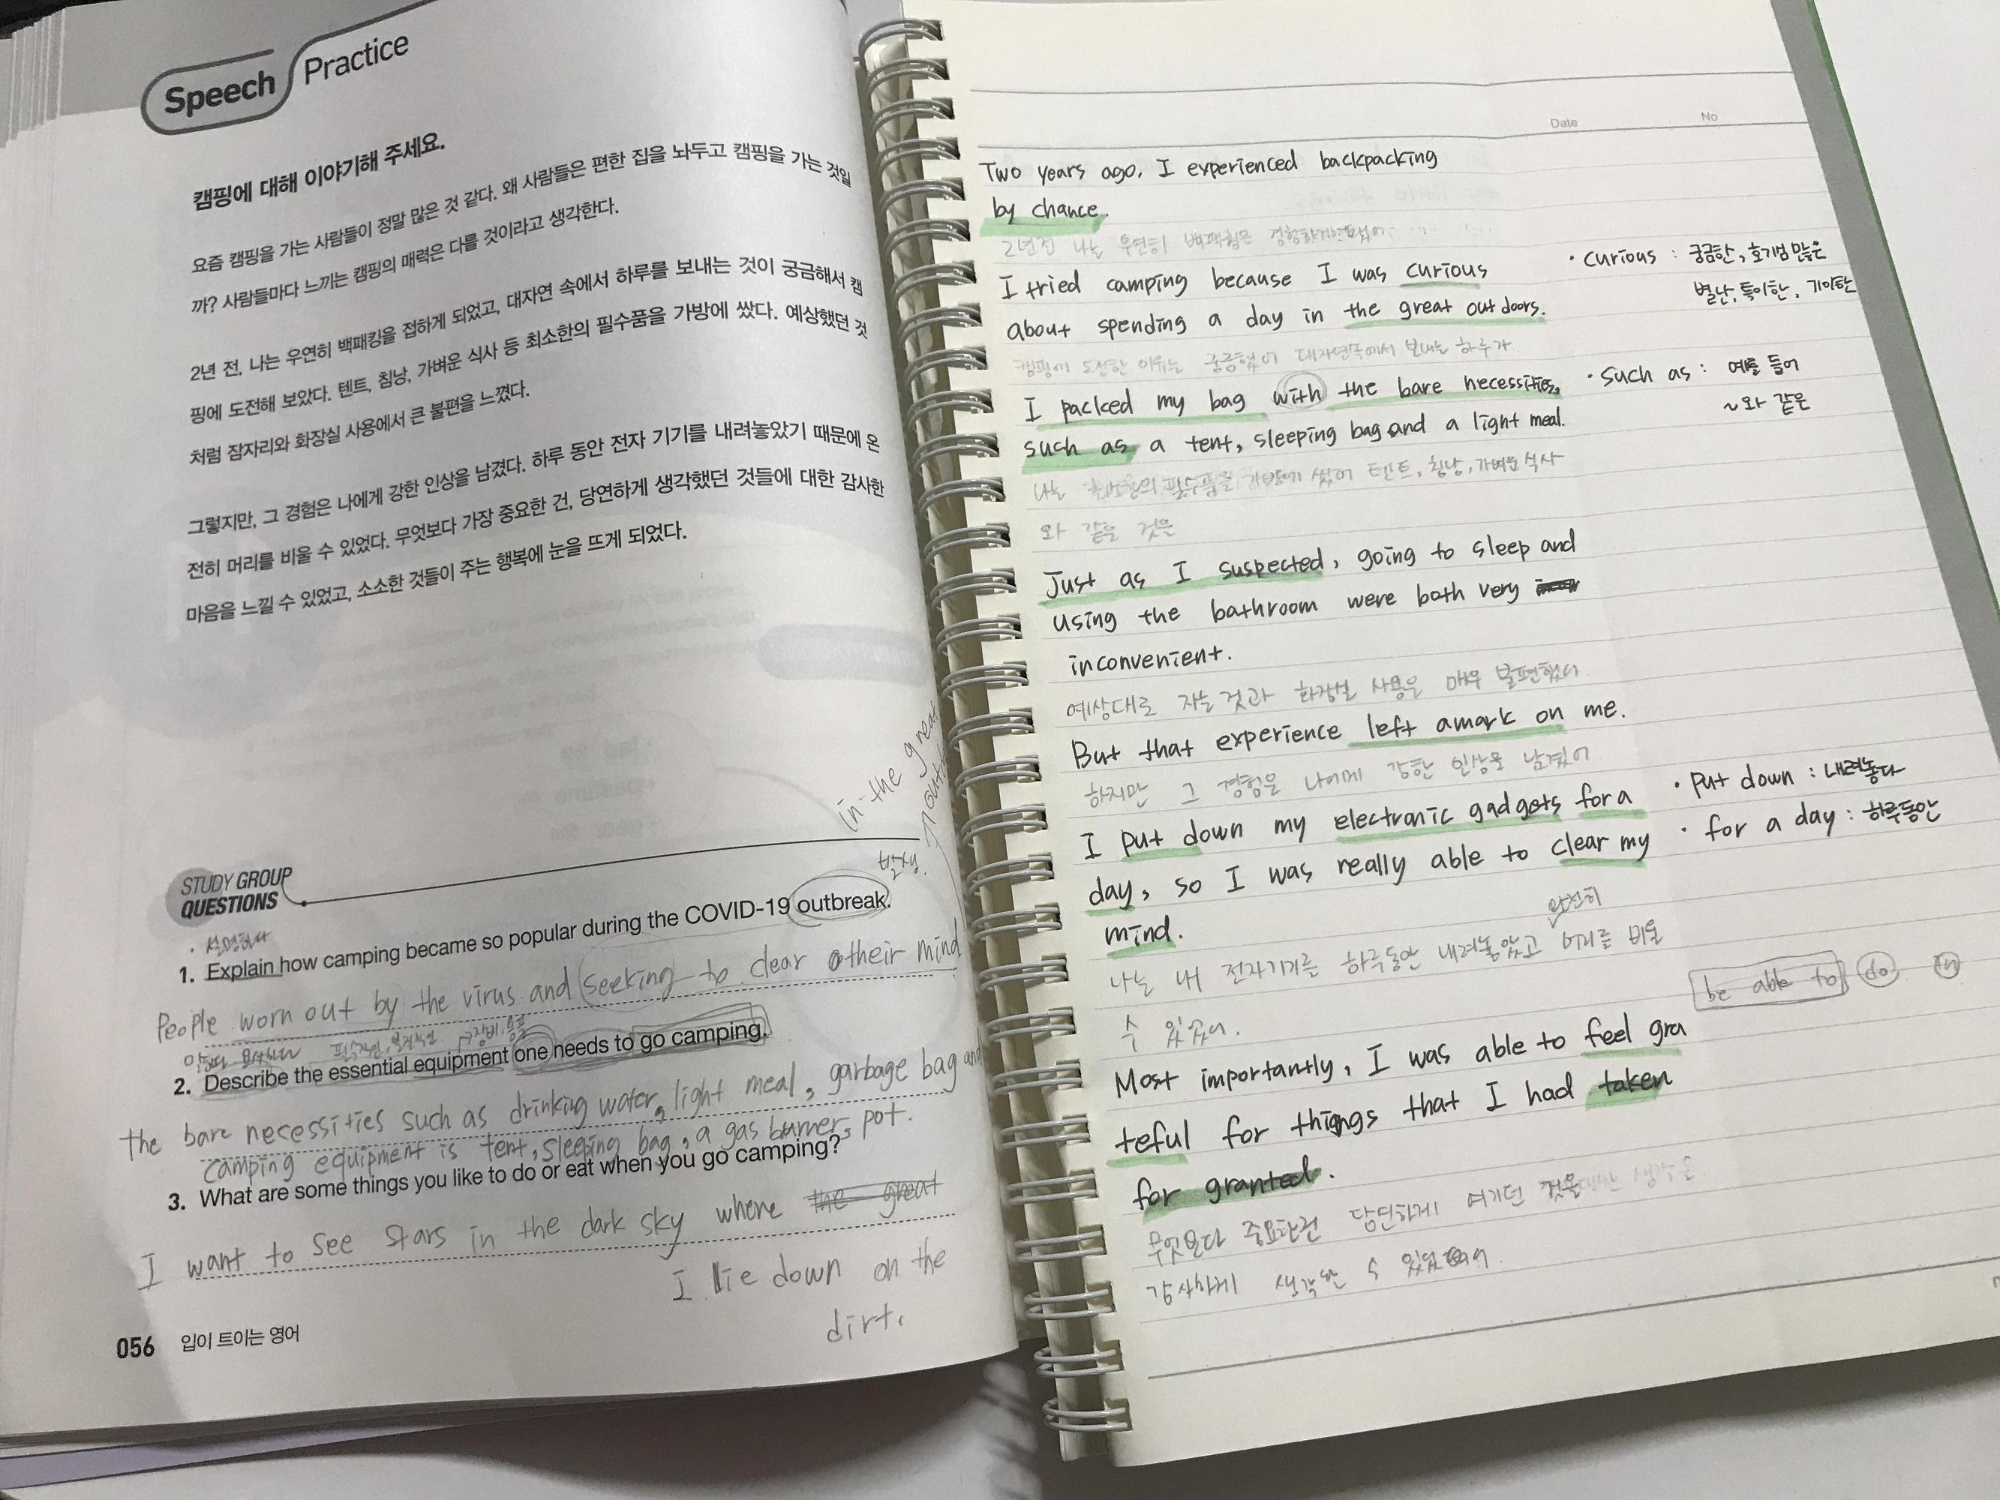 Speech Practice
캠핑에 대해 이야기해 주세요.
요즘 캠핑을 가는 사람들이 정말 많은 것 같다. 왜 사람들은 편한 집을 놔두고 캠핑을 가는 것일
까? 사람들마다 느끼는 캠핑의 매력은 다를 것이라고 생각한다.
2년 전, 나는 우연히 백패킹을 접하게 되었고, 대자연 속에서 하루를 보내는 것이 궁금해서 캠
핑에 도전해 보았다. 텐트, 침낭, 가벼운 식사 등 최소한의 필수품을 가방에 쌌다. 예상했던 것
처럼 잠자리와 화장실 사용에서 큰 불편을 느꼈다.
그렇지만, 그 경험은 나에게 강한 인상을 남겼다. 하루 동안 전자 기기를 내려놓았기 때문에 온
전히 머리를 비울 수 있었다. 무엇보다 가장 중요한 건, 당연하게 생각했던 것들에 대한 감사한
마음을 느낄 수 있었고, 소소한 것들이 주는 행복에 눈을 뜨게 되었다.
in the great
STUDY GROUP
QUESTIONS
발생.
· 설명하다
1. Explain how camping became so popular during the COVID-19 outbreak.
People worn out by the virus and seeking to clear their mind
필수적인, 본질적인 → 장비, 용품
2. Describe the essential equipment one needs to go camping.
the bare necessities such as drinking water, light meal, garbage bag and
camping equipment is tent, sleeping bag, a gas burner, pot.
3. What are some things you like to do or eat when you go camping?
I want to see stars in the dark sky where the great
I lie down on the
dirt.
056 입이 트이는 영어
Date No
Two years ago, I experienced backpacking
by chance.
2년전 나는 우연히 백패킹을 경험하게되었어
I tried camping because I was curious
about spending a day in the great outdoors.
캠핑에 도전한 이유는 궁금했어 대자연속에서 보내는 하루가
I packed my bag with the bare necessities,
such as a tent, sleeping bag and a light meal.
나는 최소한의 필수품을 가방에 쌌어 텐트, 침낭, 가벼운 식사
와 같은 것을
Just as I suspected, going to sleep and
using the bathroom were both very
inconvenient.
예상대로 자는 것과 화장실 사용은 매우 불편했어
But that experience left a mark on me.
하지만 그 경험은 나에게 강한 인상을 남겼어
I put down my electronic gadgets for a
day, so I was really able to clear my
mind.
완전히
나는 내 전자기기를 하루동안 내려놓았고 머리를 비울
수 있었어.
Most importantly, I was able to feel gra
teful for things that I had taken
for granted.
무엇보다 중요한건 당연하게 여기던 것을
감사하게 생각할 수 있었어.
· curious : 궁금한, 호기심 많은
별난, 특이한, 기이한
· such as : 예를 들어
~와 같은
· put down : 내려놓다
· for a day : 하루동안
be able to do